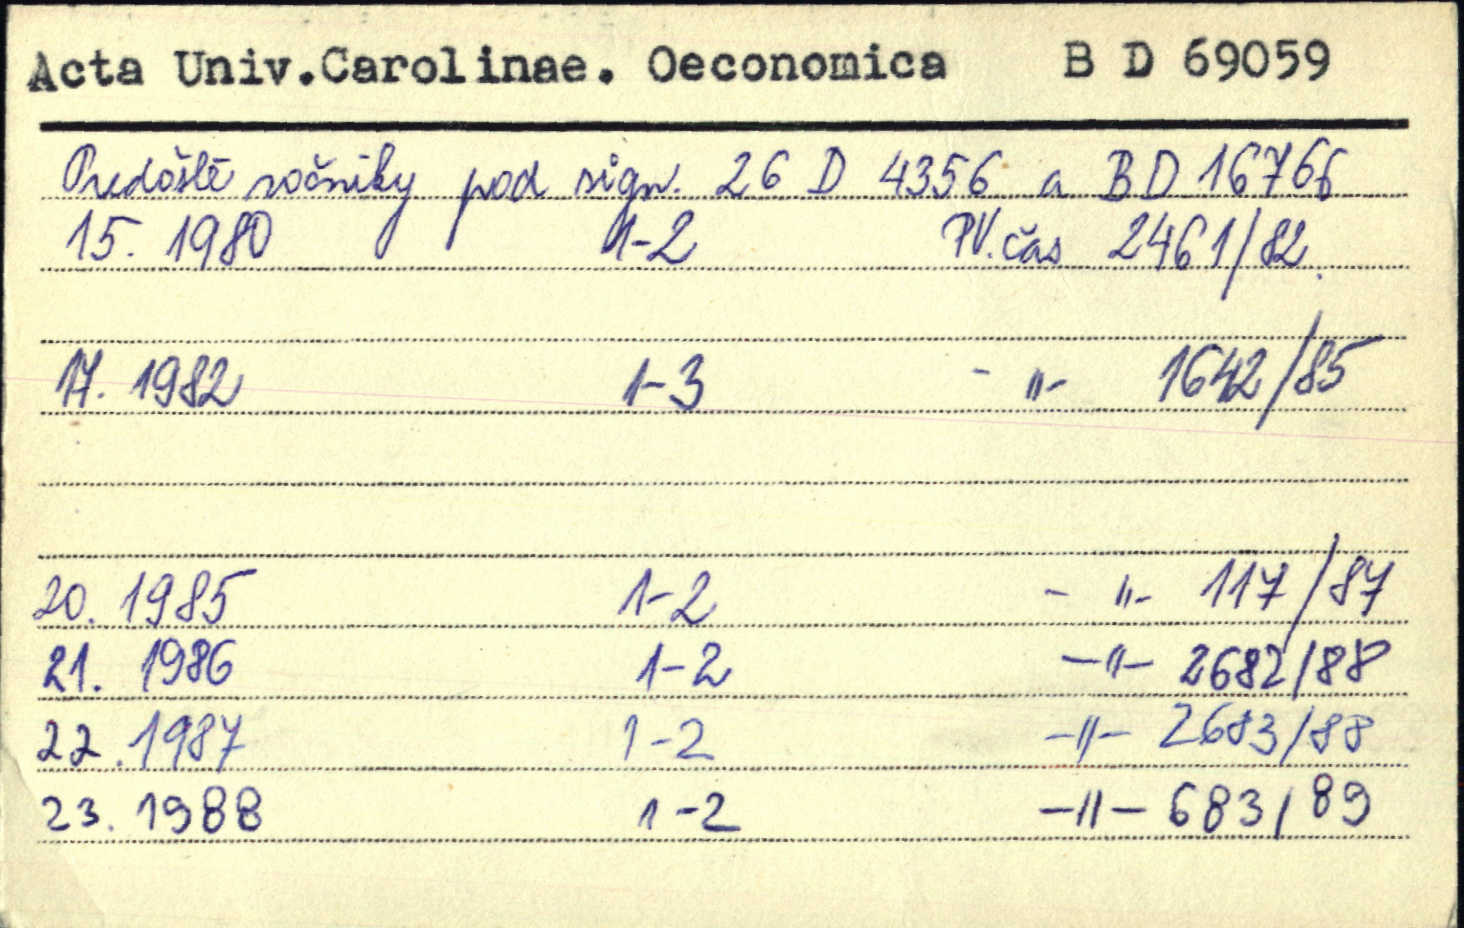 Acta Univ.Carolinae. Oeconomica B D 69059
Predošlé ročníky pod sign. 26 D 4356 a BD 16766
15. 1980 1-2 PV.čas 2461/82.
17. 1982 1-3 - " - 1642/85
20. 1985 1-2 - " - 117/87
21. 1986 1-2 -"- 2682/88
22. 1987 1-2 -"- 2683/88
23. 1988 1-2 -"- 683/89